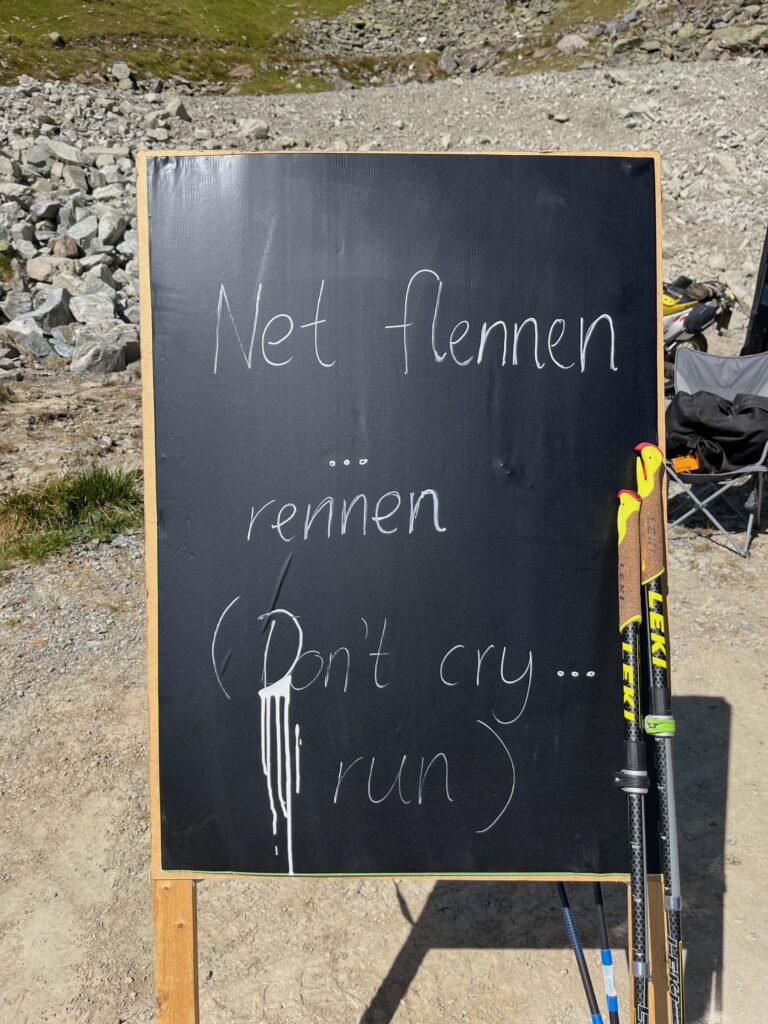 Net flennen
...
rennen
(Don't cry...
run)
LEKI
LEKI
LEKI
LEKI